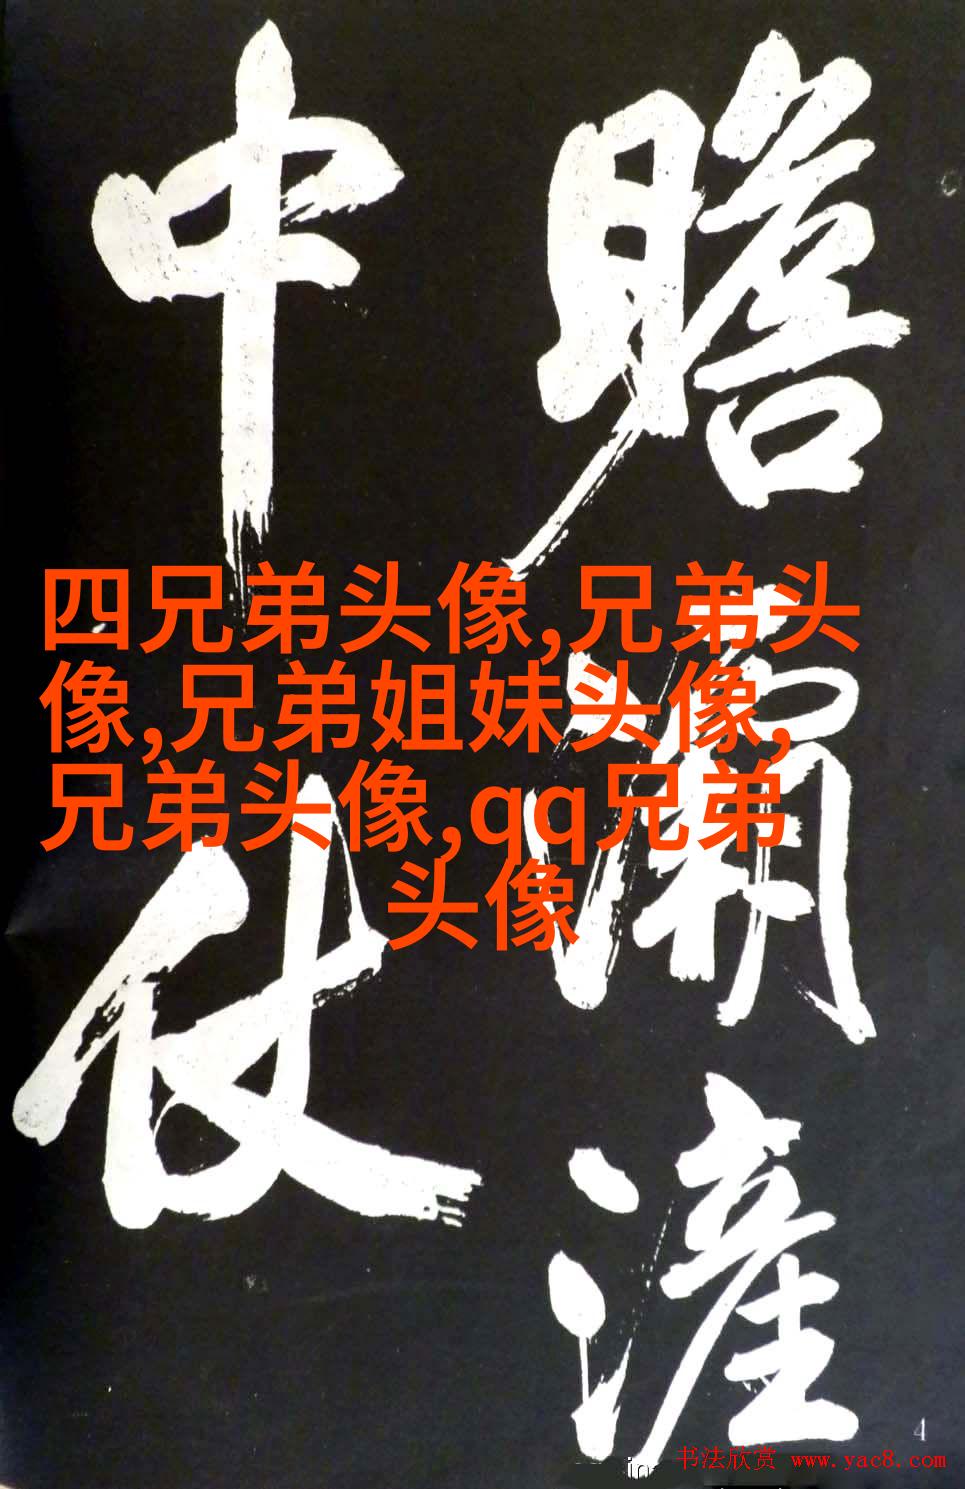 瞻灞滻
中仗
四兄弟头像,兄弟头
像,兄弟姐妹头像,
兄弟头像,qq兄弟
头像
4
书法欣赏 www.yac8.com